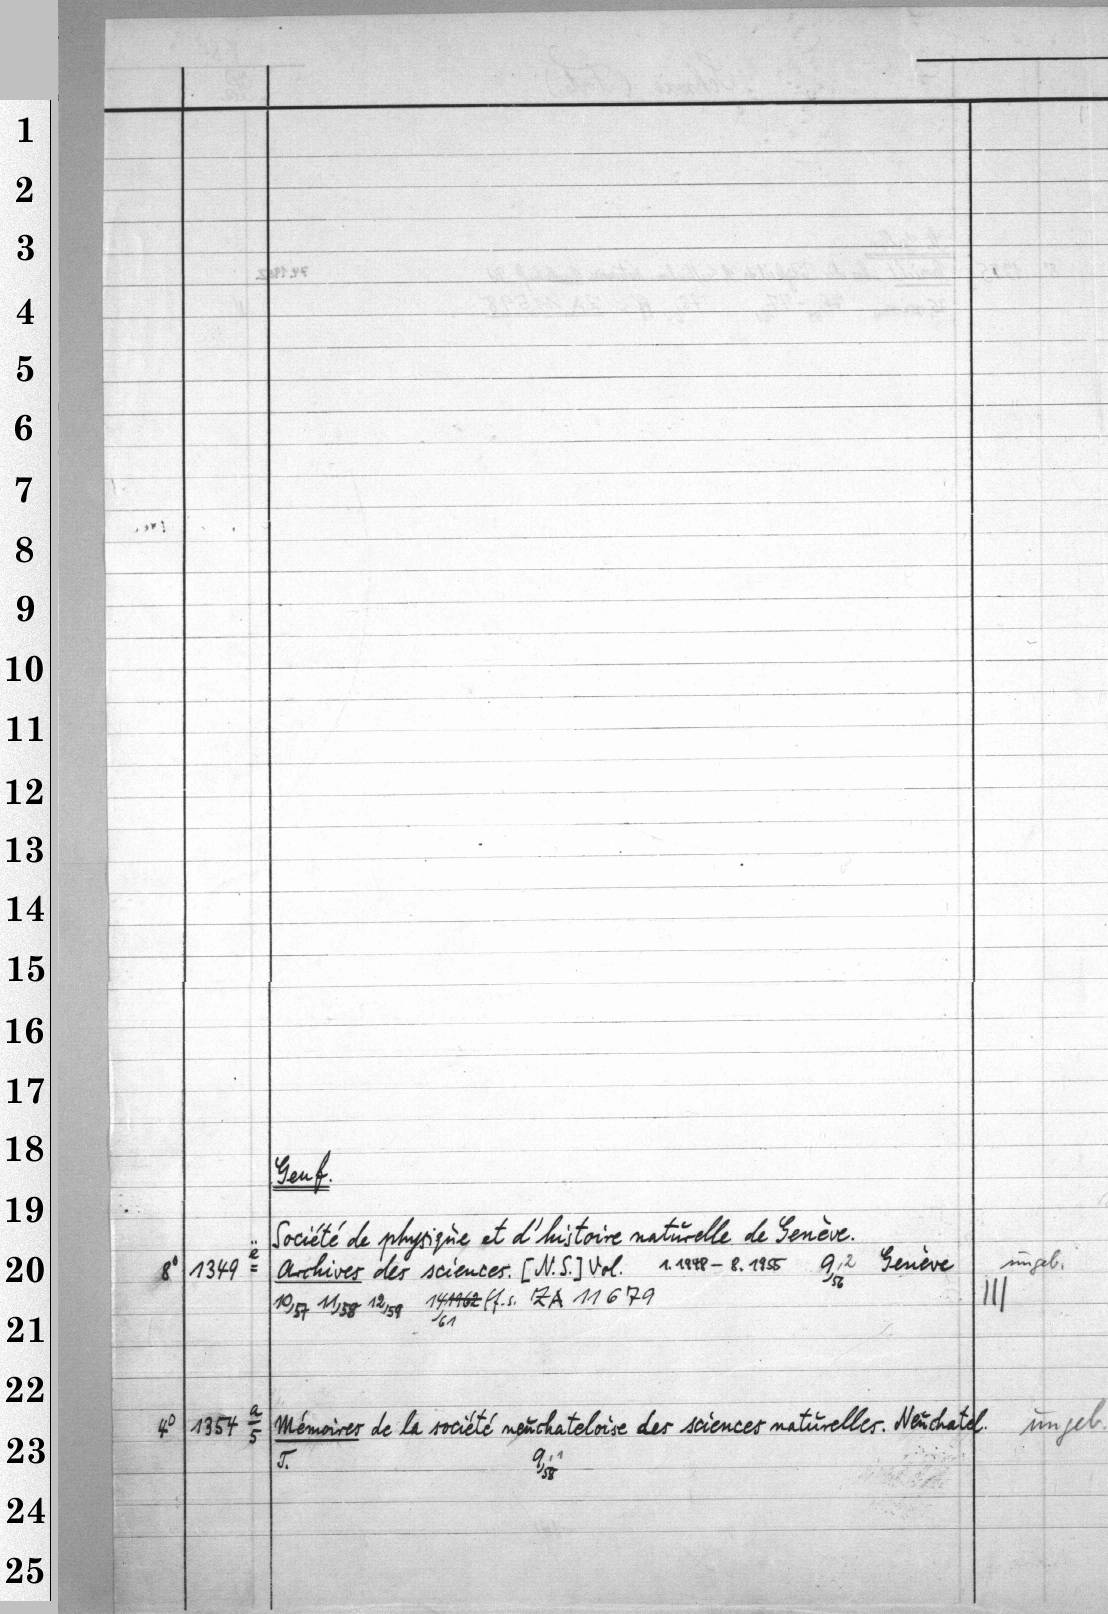 1
2
3
4
5
6
7
8
9
10
11
12
13
14
15
16
17
18
Genf.
19
Société de physique et d'histoire naturelle de Genève.
20 8° 1349 ë Archives des sciences. [N.S.] Vol. 1.1948 – 8.1955 9,2 56 Genève ungeb.
10,57 11,58 12,59 14,1962 61 ff. s. ZA 11679 III
21
22
4° 1354 a/5 Mémoires de la société neuchateloise des sciences naturelles. Neuchatel. ungeb.
23 T. 9,1 58
24
25